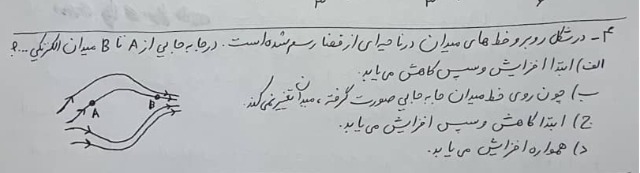 ۴- در شکل روبرو خط های میدان در ناحیه‌ای از فضا رسم شده است. در جابه جایی از A تا B میدان الکتریکی ...؟
الف) ابتدا افزایش و سپس کاهش می یابد.
ب) چون روی خط میدان جابه جایی صورت گرفته، میدان تغییر نمی کند.
ج) ابتدا کاهش و سپس افزایش می یابد.
د) همواره افزایش می یابد.
A
B